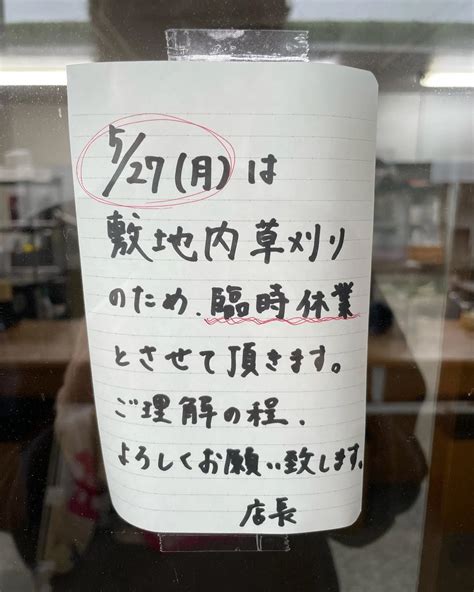 5/27(月)は
敷地内草刈り
のため、臨時休業
とさせて頂きます。
ご理解の程、
よろしくお願い致します。
店長